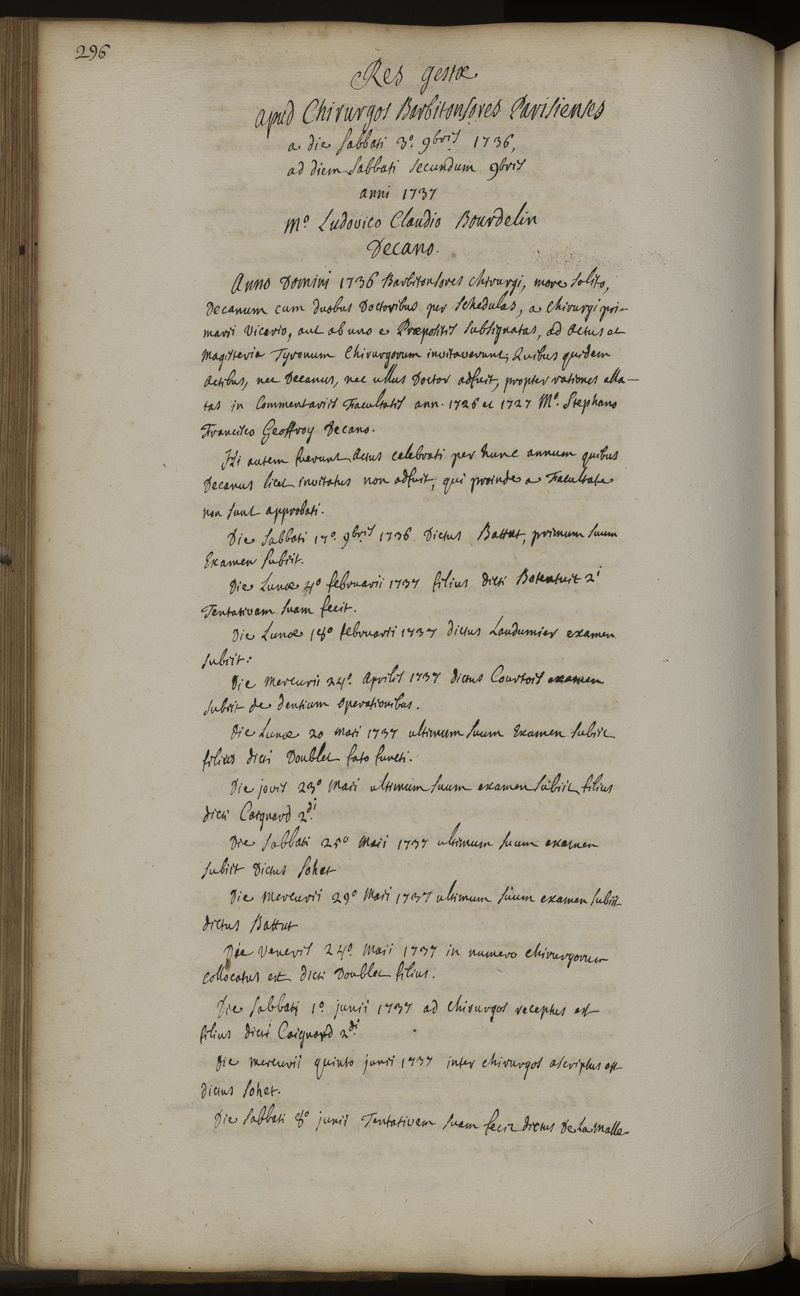 296
Res gestæ
apud Chirurgos Barbitonsores Parisienses
a die Sabbati 3º. 9bris 1736,
ad diem Sabbati secundum 9bris
anni 1737
Mº. Ludovico Claudio Bourdelin
Decano.
Anno Domini 1736 Barbitonsores chirurgi, more solito,
Decanum cum duobus Doctoribus per schedulas, a chirurgi pri-
marii vicario, aut ab uno e Præpositis subsignatas, ad Actus et
Magisteria Tyronum Chirurgorum invitaverunt; Quibus quidem
Actibus, nec Decanus, nec ullus Doctor adfuit, propter rationes alla-
tas in Commentariis Facultatis ann. 1726 et 1727 Mº. Stephano
Francisco Geoffroy Decano.
Hi autem fuerunt Actus celebrati per hunc annum quibus
Decanus licet invitatus non adfuit, qui proinde a Facultate
non sunt approbati.
Die Sabbati 17º. 9bris 1736 Dictus Battut, primum suum
Examen subiit.
Die Lunæ 4º februarii 1737 filius dicti Botentuit 2i
Tentativam suam fecit.
Die Lunæ 18º februarii 1737 dictus Laudumier examen
subiit.
Die Mercurii 24º. Aprilis 1737 dictus Courtois examen
subiit de dentium operationibus.
Die Lunæ 20 Maii 1737 ultimum suum Examen subiit
filius dicti Doublet fato functi.
Die jovis 23º Maii ultimum suum examen subiit filius
dicti Coignard 2di.
Die Sabbati 25º Maii 1737 ultimum suum examen
subiit Dictus Sohet
Die Mercurii 29º Maii 1737 ultimum suum examen subiit
dictus Battut
Die Veneris 24º. Maii 1737 in numero chirurgorum
collocatus est dicti Doublet filius.
Die Sabbati 1º junii 1737 ad chirurgos receptus est
filius dicti Coignard 2di.
Die Mercurii quinto junii 1737 inter chirurgos ascriptus est
dictus Sohet.
Die Sabbati 8º junii Tentativam suam fecit dictus De La Malle